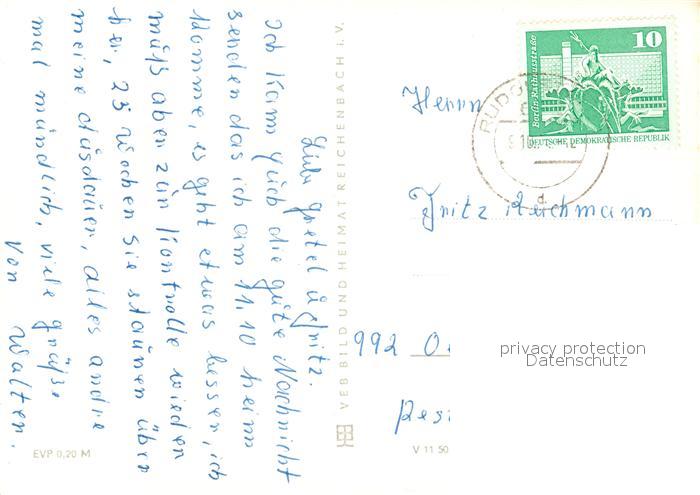 Liebe gretel ü fritz.
Ich kann Eüch die güte Nachricht
senden das ich am 11.10 heim
komme, es geht etwas besser, ich
müß aber zür Kontrolle wieder
her, 23 Wochen sie staünen über
meine aüsdaüer, alles andre
mal mündlich, viele grüße
von Walter.
VEB BILD UND HEIMAT REICHENBACH i. V.
EVP 0,20 M
V 11 50
10
Berlin-Rathausstraße
DEUTSCHE DEMOKRATISCHE REPUBLIK
RUDO
d
Herrn
Fritz Reichmann
992 O
privacy protection
Datenschutz